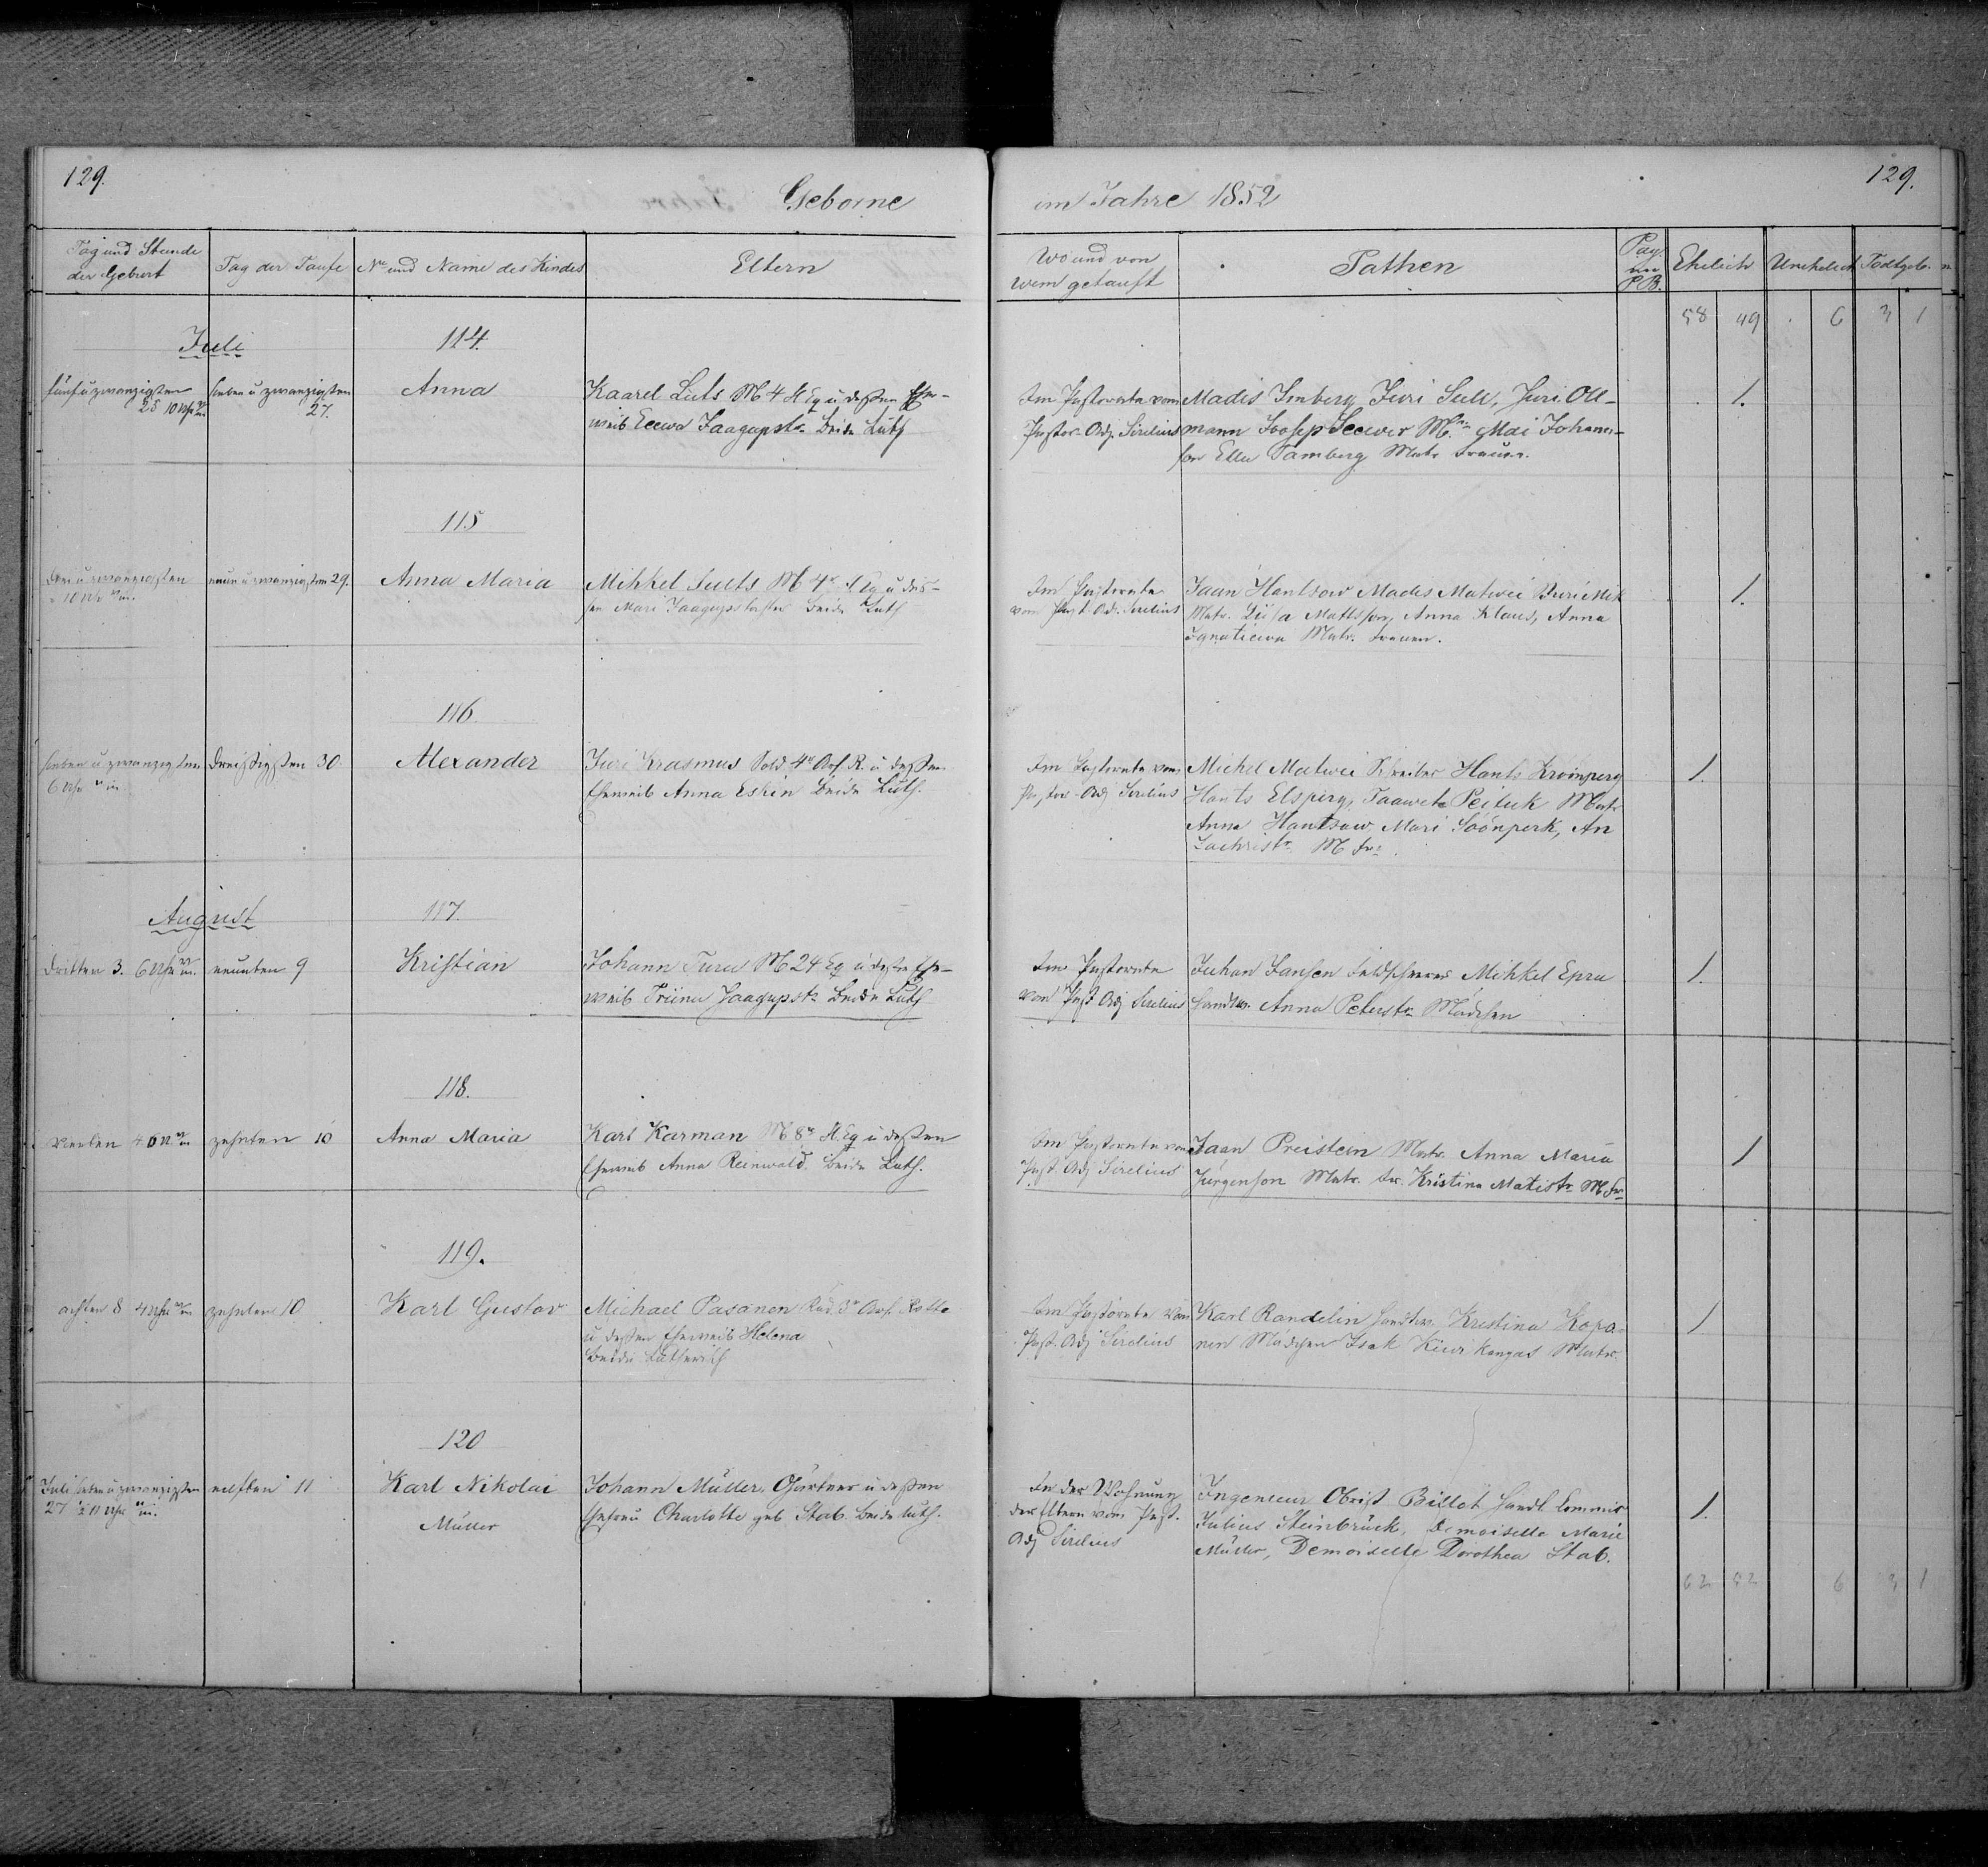 129.
Geborne
im Jahre 1852
129.
Tag und Stunde
der Geburt
Tag der Taufe
No und Name des Kindes
Eltern
Wo und von
wem getauft
Pathen
Pag.
im
P.B.
Ehelich
Unehelich
Todtgeb.
58 49 6 3 1
Juli
114.
fünf u zwanzigsten
25 10 Uhr
sieben u zwanzigsten
27.
Anna
Kaarel Luts M 4 Eq u deßen Ehe-
weib Eewa Jaagupstr. beide Luth
Im Pastorate vom
Pastor Adj. Sirelius
Madis Imberg Juri Sull, Juri Oll-
mann Joosep Seewer Mtr. Mai Johann-
son Ella Tamberg Matr frauen.
1.
115
drei u zwanzigsten
10 Uhr
neun u zwanzigsten 29.
Anna Maria
Mihkel Sults M 4r Eq u des-
sen Mari Jaagupstochter beide Luth
Im Pastorate
vom Past. Adj. Sirelius
Jaan Hantsow Madis Matwei Juri Mik
Matr. Liisa Mattson, Anna Klaus, Anna
Ignatiewa Matr. frauen.
1.
116.
sieben u zwanzigsten
6 Uhr
dreißigsten 30
Alexander
Juri Krasmus Sold 4r Arb. R. u deßen
Eheweib Anna Eskin beide Luth.
Im Pastorate vom
Pastor Adj Sirelius
Michel Matwei Schreiber Hants Kroinperg
Hants Elsperg, Taawet Peituk Matr
Anna Hantsow, Mari Soönperk, An
Sachristr. M fr.
1.
August
117.
dritten 3. 6 Uhr
neunten 9
Kristian
Johann Turu M 24 Eq u deßen Ehe-
weib Triinu Jaagupstr beide Luth
Im Pastorate
vom Past Adj Sirelius
Juhan Jansen Feldscheerer Mihkel Epru
Handw. Anna Peterstr Mädchen
1.
118.
vierten 4 6 U.
zehnten 10
Anna Maria
Karl Karman M 8r Eq u deßen
Eheweib Anna Reinwald. beide Luth.
Im Pastorate vom
Past. Adj Sirelius
Jaan Preistern Matr. Anna Maria
Jürgenson Matr. fr. Kristina Matistr M fr
1
119.
achten 8 4 Uhr
zehnten 10
Karl Gustav
Michael Pasanen 3r Arb. Rotte
u deßen Eheweib Helena
beide Lutherisch
Im Pastorate vom
Past. Adj Sirelius
Karl Randelin Handw. Kristina Kopa-
nen Mädchen Isak Kiwi kangas Matr.
1
120
Juli sieben u zwanzigsten
27 11 Uhr
eilften 11
Karl Nikolai
Müller
Johann Müller, Gärtner u deßen
Ehefrau Charlotte geb. Stab. beide luth.
In der Wohnung
der Eltern vom Past.
Adj Sirelius
Ingenieur Obrist Billot Handl. Commis
Julius Steinbrück, Demoiselle Marie
Müller, Demoiselle Dorothea Stab.
1.
62 52 6 3 1